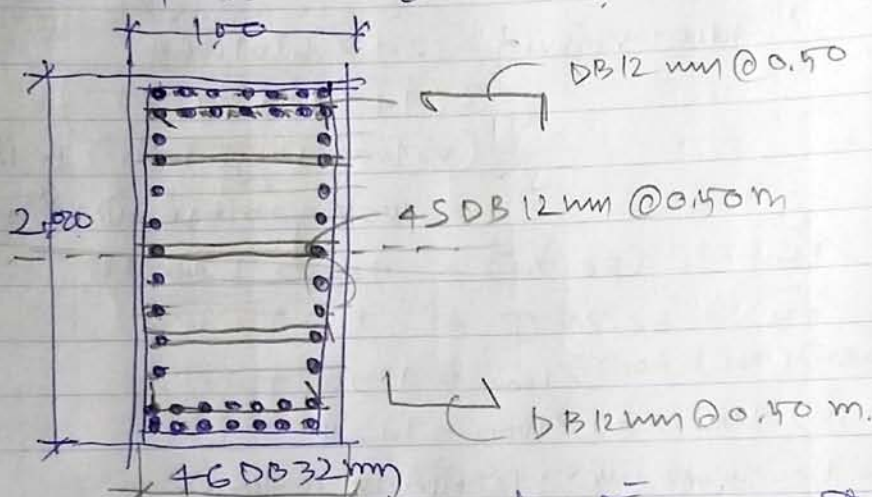 1.00
DB12 mm @ 0.50
2.00
4S DB 12 mm @ 0.50 m
DB 12 mm @ 0.50 m.
46 DB 32 mm